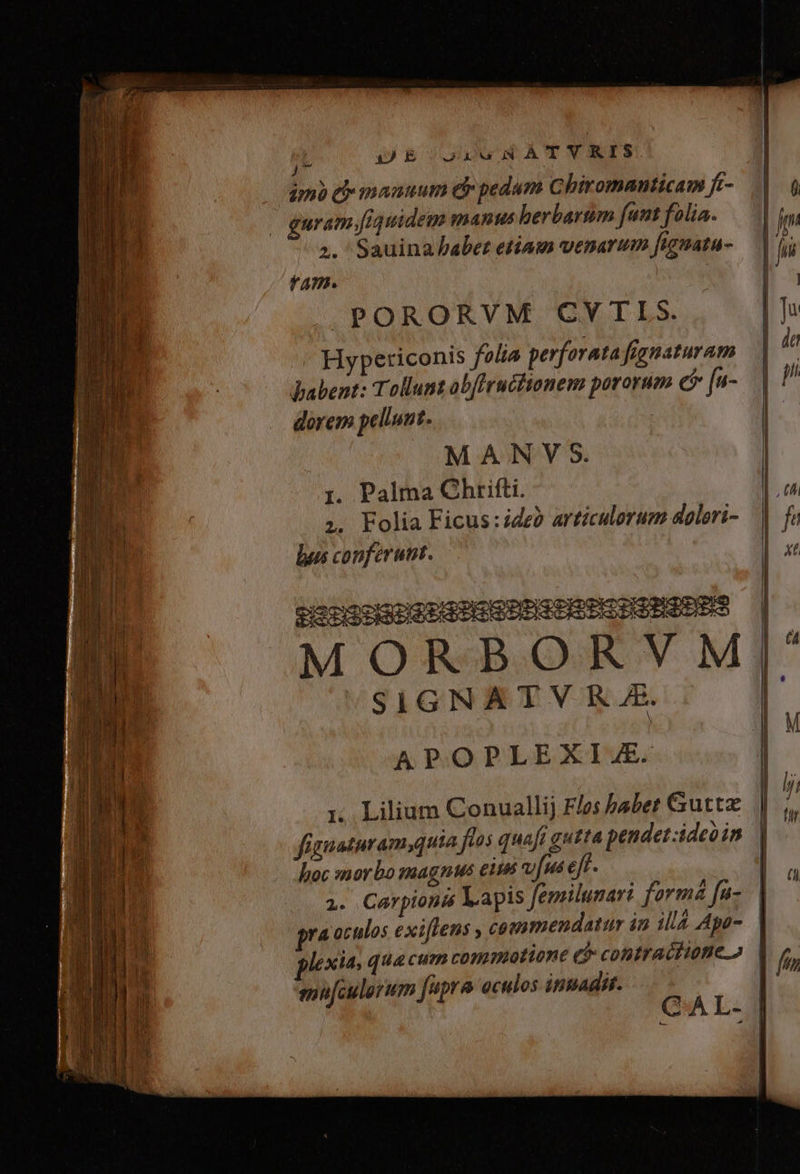 DE SIGNATVRIS
imò & manuum & pedum Chiromanticam fi-
guram, ſiquidem manus herbarum ſunt folia.
2. Sauina habet etiam venarum ſignatu-
ram.
PORORVM CVTIS.
Hypericonis folia perforata ſignaturam
habent: Tollunt obſtructionem pororum & ſu-
dorem pellunt.
MANVS.
1. Palma Chriſti.
2. Folia Ficus: ideò articulorum dolori-
bus conferunt.
MORBORVM
SIGNATVRÆ.
APOPLEXIÆ.
1. Lilium Conuallij Flos habet Guttæ
ſignaturam, quia flos quaſi gutta pendet: ideò in
hoc morbo magnus eius vſus eſt.
2. Carpionis Lapis ſemilunari formâ ſu-
pra oculos exiſtens, commendatur in illâ Apo-
plexia, quæ cum commotione & contractione
muſculorum ſupra oculos inuadit.
CAL-